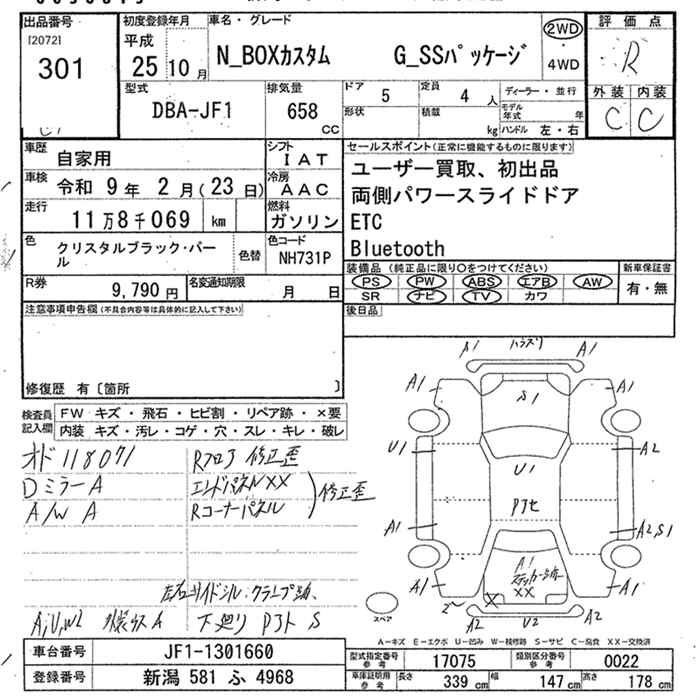 出品番号
[2072]
301
初度登録年月
平成
25年10月
車名・グレード
N_BOXカスタム G_SSパッケージ
2WD
・4WD
評価点
R
外装 内装
C C
型式
DBA-JF1
排気量
658
CC
ドア 5
定員 4 人
形状
積載 kg
ディーラー・並行
モデル年式 年
ハンドル 左・右
車歴
自家用
シフト
IAT
車検 令和 9年 2月(23日)
冷房
AAC
走行 11万8千069 km
燃料
ガソリン
色
クリスタルブラック・パール
色替
色コード
NH731P
R券 9,790 円
名変通知期限 月 日
セールスポイント(正常に機能するものに限ります)
ユーザー買取、初出品
両側パワースライドドア
ETC
Bluetooth
装備品(純正品に限り○をつけてください)
新車保証書
PS PW ABS エアB AW
SR ナビ TV カワ
有・無
後日品
注意事項申告欄(不具合内容等は具体的に記入して下さい)
修復歴 有〔箇所 〕
検査員記入欄
FW キズ・飛石・ヒビ割・リペア跡・×要
内装 キズ・汚レ・コゲ・穴・スレ・キレ・破レ
オド118071
Rフロア 修正歪
Dミラー A
エンドパネルXX
A/W A
Rコーナーパネル
修正歪
左右サイドシル、クランプ跡、
A,U,W2
ガラス A
下廻り Pアト S
A1
A1
A1
S1
A1
U1
U1
A2
Pアセ
A1
A2,S1
A1
A1
XX
A1
X
A2
U2
A2
スペア
A-キズ E-エクボ U-凹み W-補修跡 S-サビ C-腐食 XX-交換済
車台番号 JF1-1301660
登録番号 新潟 581 ふ 4968
型式指定番号 参考 17075
類別区分番号 参考 0022
車庫証明用 参考 長さ 339 cm 幅 147 cm 高さ 178 cm